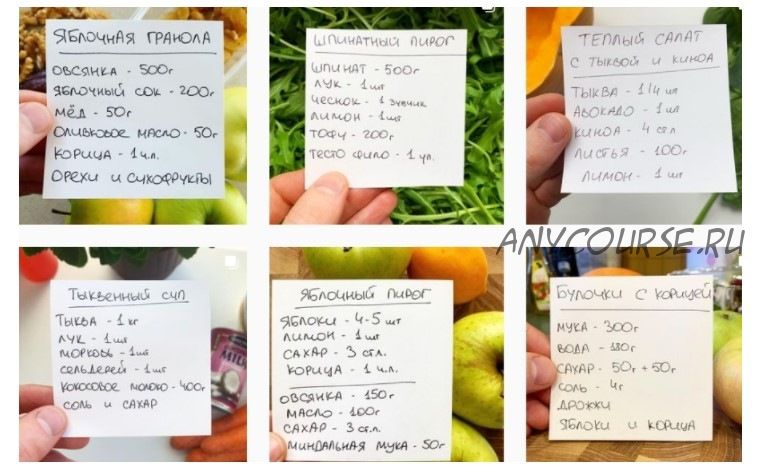 ЯБЛОЧНАЯ ГРАНОЛА
ОВСЯНКА - 500г
ЯБЛОЧНЫЙ СОК - 200г
МЁД - 50г
ОЛИВКОВОЕ МАСЛО - 50г
КОРИЦА - 1 ч.л.
ОРЕХИ И СУХОФРУКТЫ
ШПИНАТНЫЙ ПИРОГ
ШПИНАТ - 500г
ЛУК - 1 шт
ЧЕСНОК - 1 зубчик
ЛИМОН - 1 шт
ТОФУ - 200г
ТЕСТО ФИЛО - 1 уп.
ТЕПЛЫЙ САЛАТ
С ТЫКВОЙ И КИНОА
ТЫКВА - 1/4 шт
АВОКАДО - 1 шт
КИНОА - 4 ст.л
ЛИСТЬЯ - 100г
ЛИМОН - 1 шт
ANYCOURSE.RU
ТЫКВЕННЫЙ СУП
ТЫКВА - 1 кг
ЛУК - 1 шт
МОРКОВЬ - 1 шт
СЕЛЬДЕРЕЙ - 1 шт
КОКОСОВОЕ МОЛОКО - 400г
СОЛЬ И САХАР
MILK
ЯБЛОЧНЫЙ ПИРОГ
ЯБЛОКИ - 4-5 шт
ЛИМОН - 1 шт
САХАР - 3 ст.л.
КОРИЦА - 1 ч.л.
ОВСЯНКА - 150г
МАСЛО - 100г
САХАР - 3 ст.л.
МИНДАЛЬНАЯ МУКА - 50г
БУЛОЧКИ С КОРИЦЕЙ
МУКА - 300г
ВОДА - 180г
САХАР - 50г + 50г
СОЛЬ - 4г
ДРОЖЖИ
ЯБЛОКИ И КОРИЦА